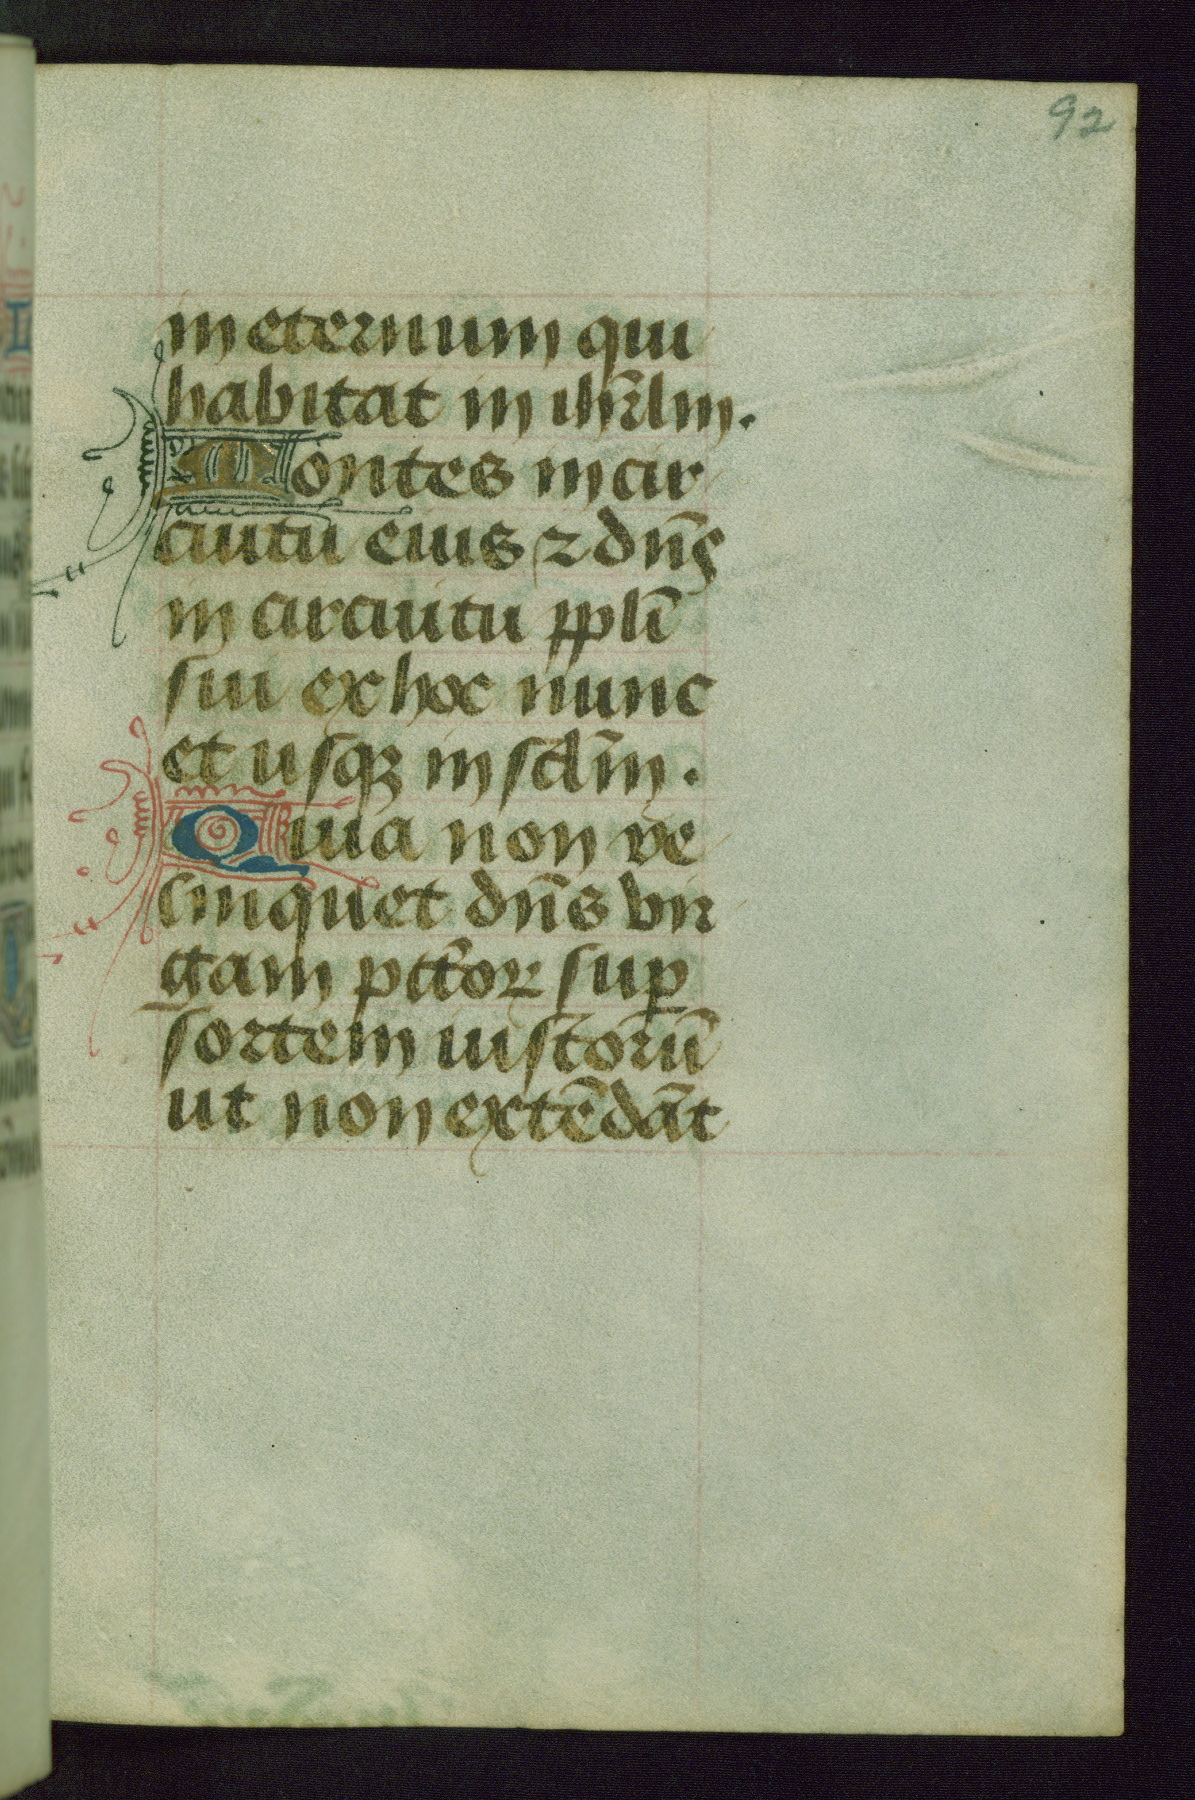 92
in eternum qui
habitat in ihr̄lm.
Montes in cir
cuitu eius ⁊ dn̄s
in circuitu pplī
sui ex hoc nunc
et usqꝫ in scl̄m.
Quia non re
linquet dn̄s vir
gam pctōꝝ suꝑ
sortem iustorū
ut non extēdāt